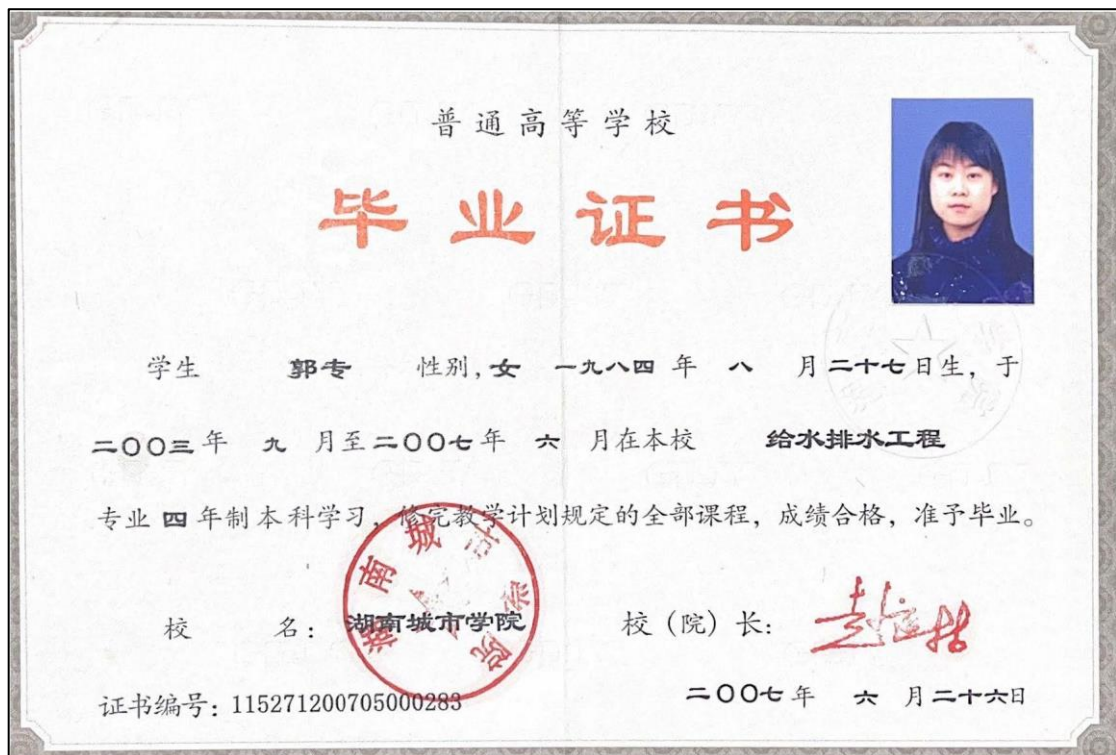 普通高等学校
毕业证书
学生 郭专 性别,女 一九八四年 八 月二十七日生,于
二〇〇三年 九 月至二〇〇七年 六 月在本校 给水排水工程
专业四年制本科学习,修完教学计划规定的全部课程,成绩合格,准予毕业。
校 名:湖南城市学院 校(院)长:
湖南城市学院
证书编号:115271200705000283 二〇〇七年 六 月二十六日